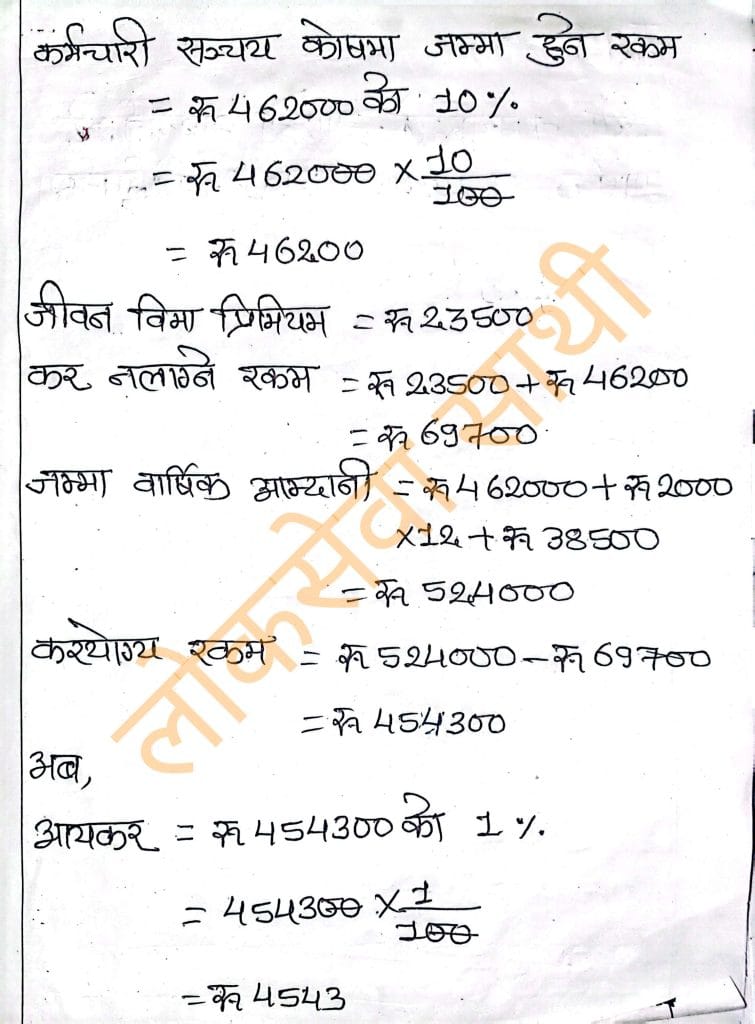 कर्मचारी सञ्चय कोषमा जम्मा हुने रकम
= रू 462000 को 10%
= रू 462000 × 10/100
= रू 46200
जीवन विमा प्रिमियम = रू 23500
कर नलाग्ने रकम = रू 23500 + रू 46200
= रू 69700
जम्मा वार्षिक आम्दानी = रू 462000 + रू 2000
×12 + रू 38500
= रू 524000
करयोग्य रकम = रू 524000 – रू 69700
= रू 454300
अब,
आयकर = रू 454300 को 1%
= 454300 × 1/100
= रू 4543
लोकसेवा साथी